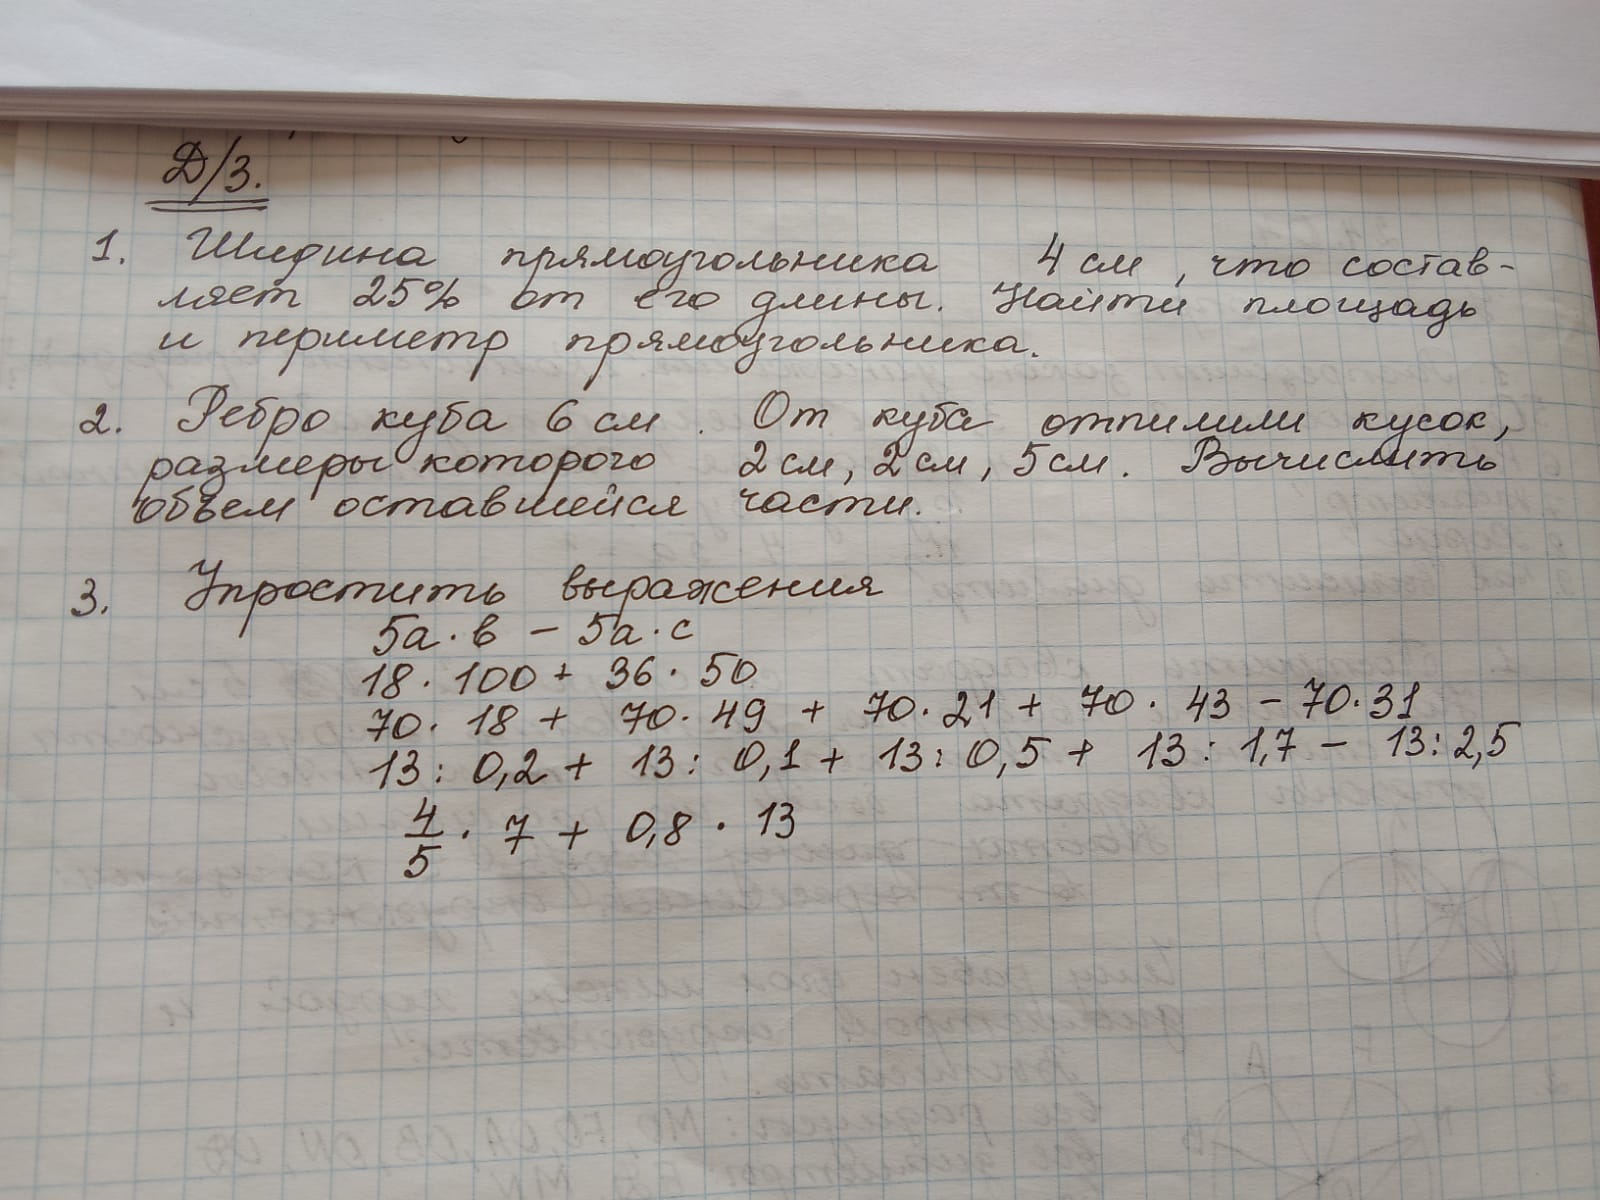 Д/З.
1. Ширина прямоугольника 4 см, что состав-
ляет 25% от его длины. Найти площадь
и периметр прямоугольника.
2. Ребро куба 6 см. От куба отпилили кусок,
размеры которого 2 см, 2 см, 5 см. Вычислить
объем оставшейся части.
3. Упростить выражения
5а · в - 5а · с
18 · 100 + 36 · 50
70 · 18 + 70 · 49 + 70 · 21 + 70 · 43 - 70 · 31
13 : 0,2 + 13 : 0,1 + 13 : 0,5 + 13 : 1,7 - 13 : 2,5
4/5 · 7 + 0,8 · 13